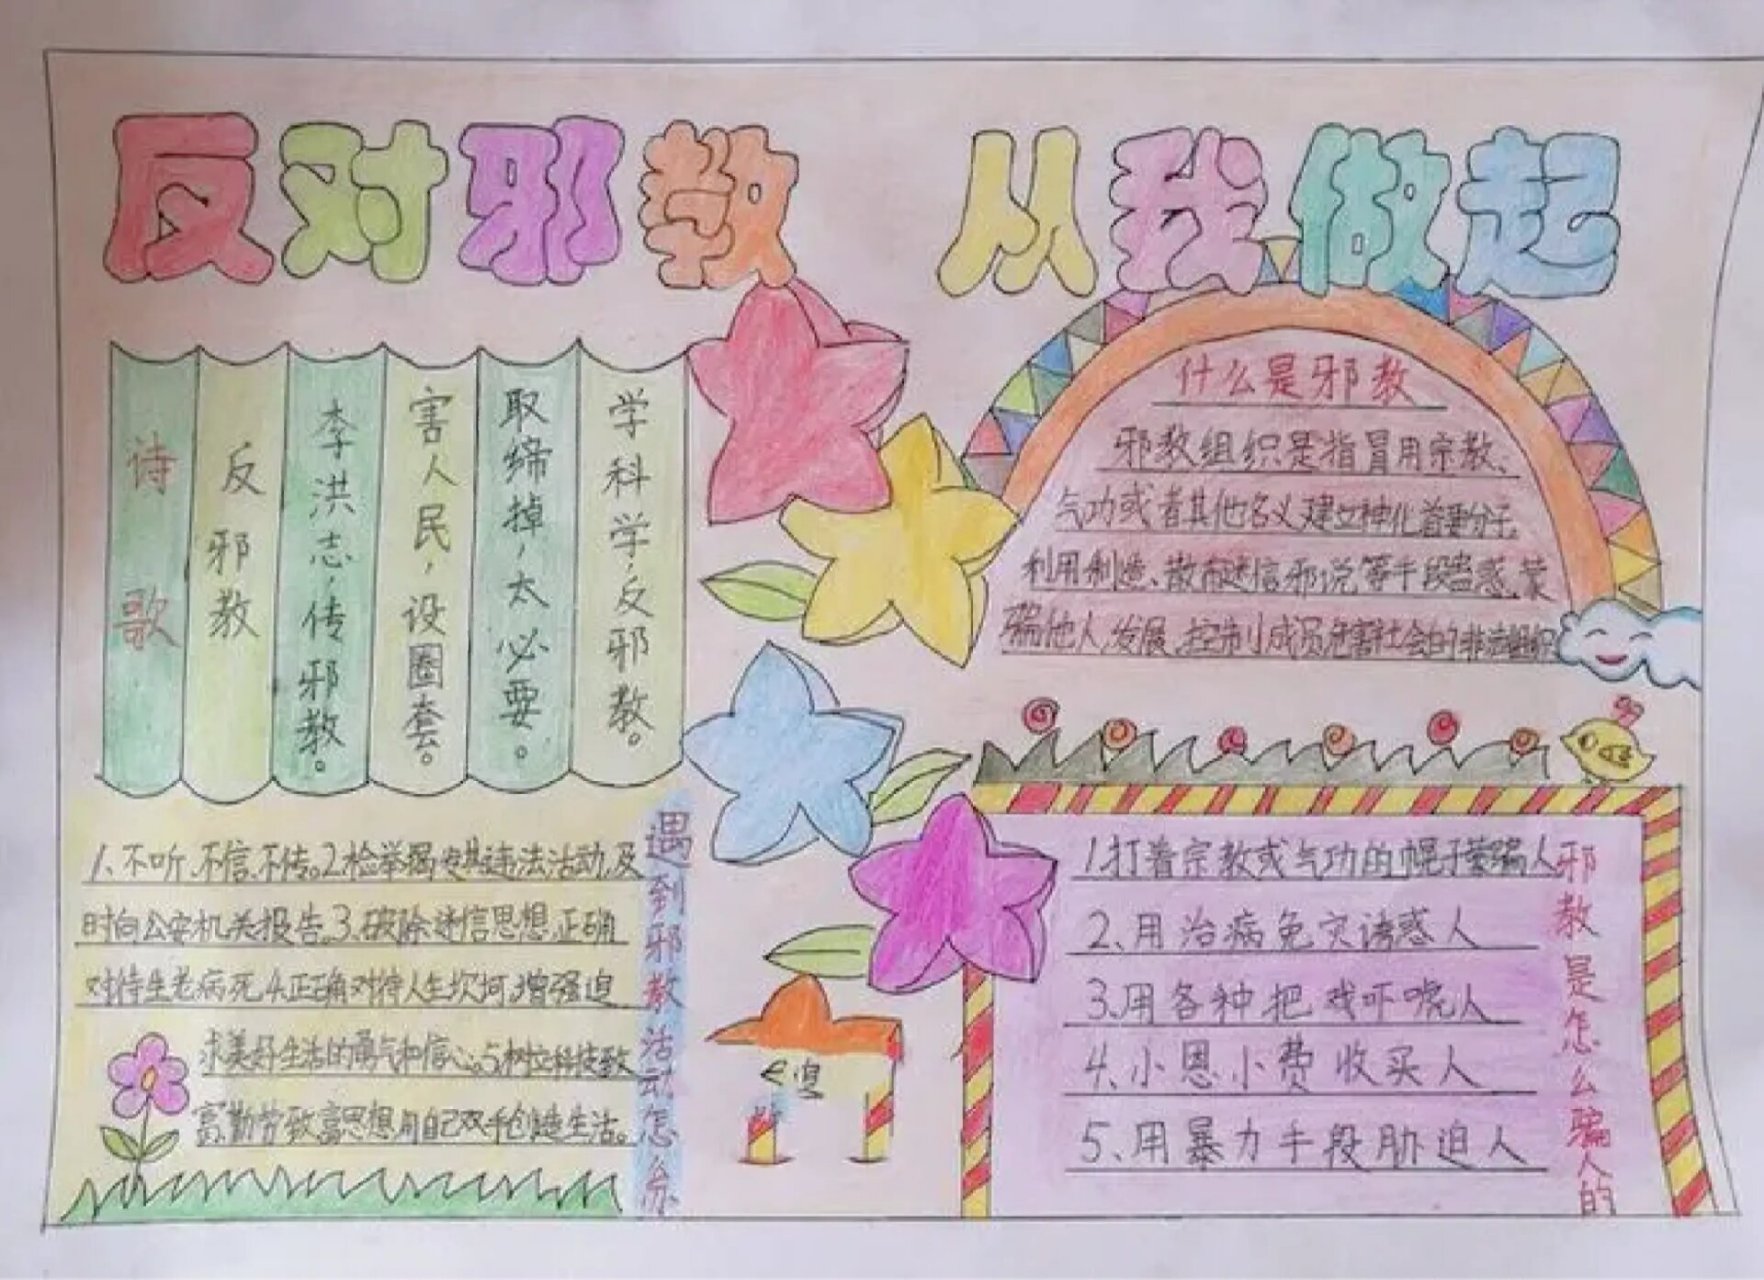 反对邪教 从我做起
诗歌
反邪教
李洪志，传邪教。
害人民，设圈套。
取缔掉，太必要。
学科学，反邪教。
什么是邪教
邪教组织是指冒用宗教、
气功或者其他名义建立神化首要分子，
利用制造、散布迷信邪说等手段蛊惑、蒙
骗他人,发展、控制小成员危害社会的非法组织
遇到邪教活动怎么办
1、不听、不信、不传。2检举揭发其违法活动,及
时向公安机关报告。3、破除迷信思想,正确
对待生老病死4.正确对待人生坎坷,增强追
求美好生活的勇气和信心。5树立科技致
富、勤劳致富思想,用自己双手创造生活。
邪教是怎么骗人的
1.打着宗教或气功的幌子蒙骗人
2、用治病免灾诱惑人
3.用各种把戏吓唬人
4、小恩小费收买人
5、用暴力手段胁迫人